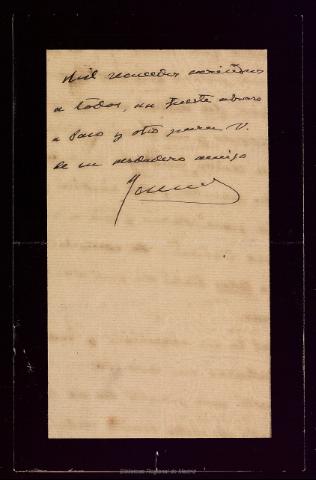 Mil recuerdos cariñosos
a todos, un fuerte abrazo
a Paco y otro para V.
de su verdadero amigo
Biblioteca Regional de Madrid